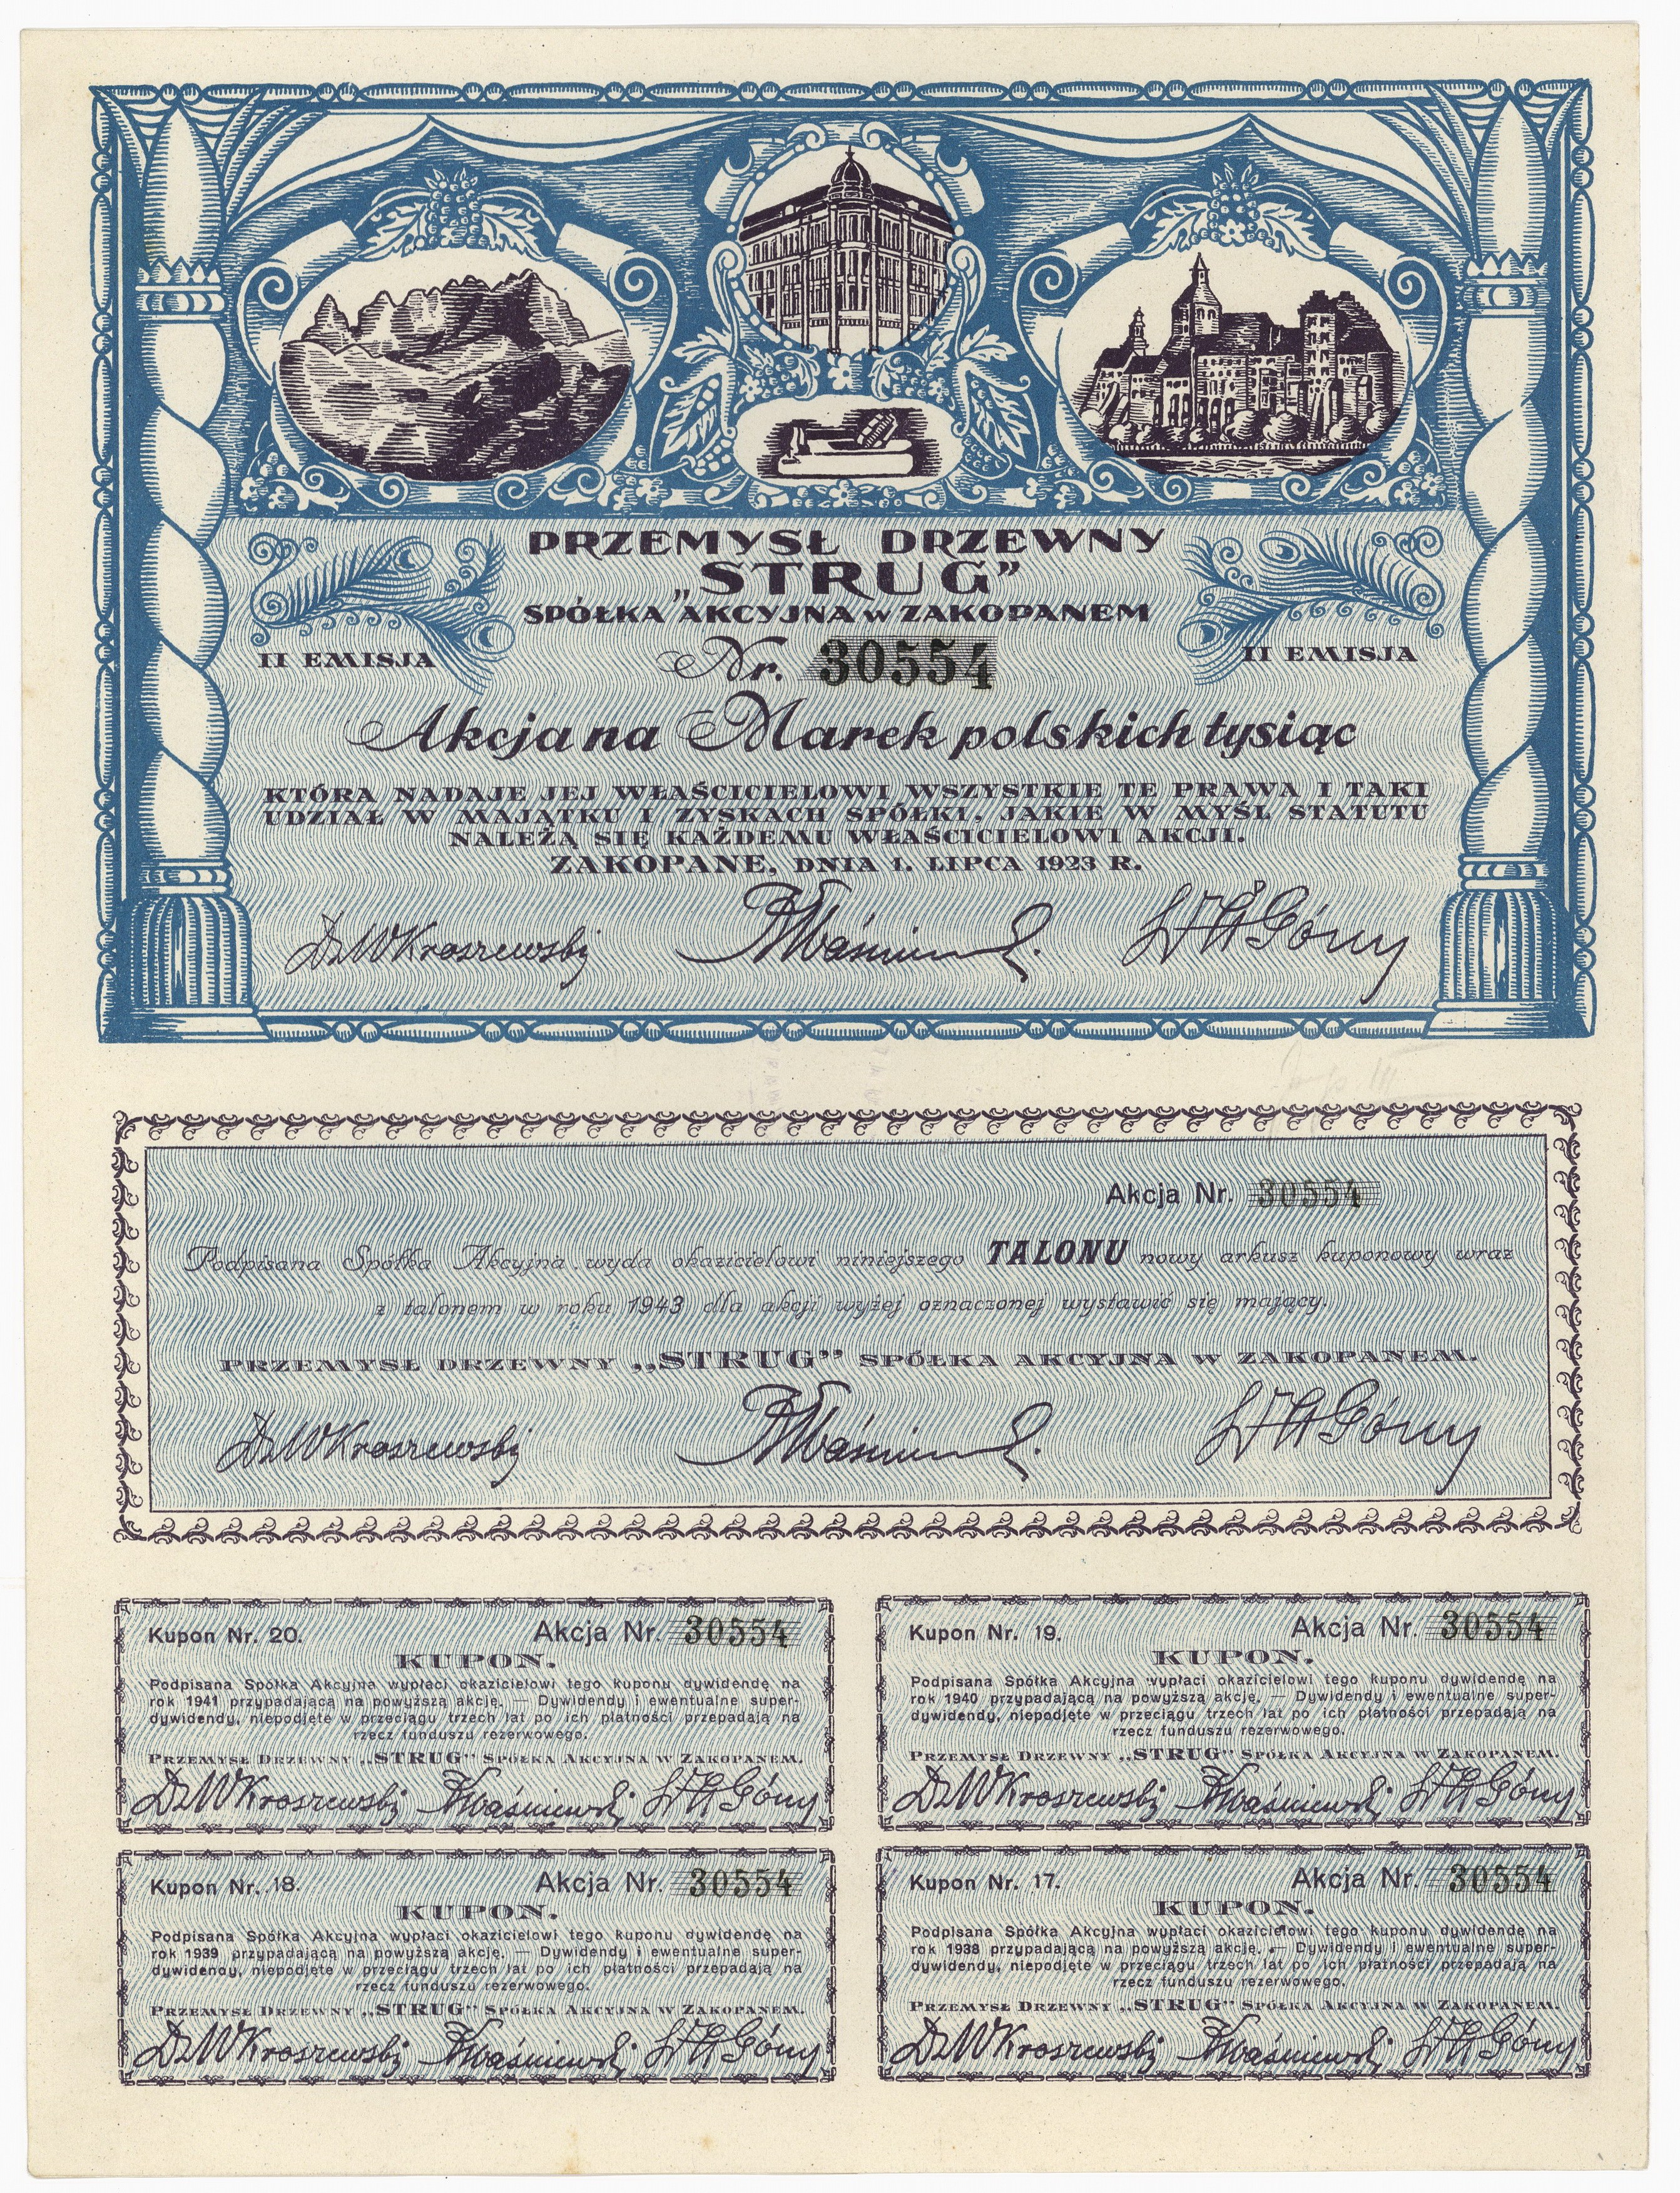 PRZEMYSŁ DRZEWNY
„STRUG”
SPÓŁKA AKCYJNA W ZAKOPANEM
II EMISJA Nr. 30554 II EMISJA
Akcja na Marek polskich tysiąc
KTÓRA NADAJE JEJ WŁAŚCICIELOWI WSZYSTKIE TE PRAWA I TAKI
UDZIAŁ W MAJĄTKU I ZYSKACH SPÓŁKI, JAKIE W MYŚL STATUTU
NALEŻĄ SIĘ KAŻDEMU WŁAŚCICIELOWI AKCJI.
ZAKOPANE, DNIA 1. LIPCA 1923 R.
Dr W Kroszewski Góny
Akcja Nr. 30554
Podpisana Spółka Akcyjna wyda okazicielowi niniejszego TALONU nowy arkusz kuponowy wraz
z talonem w roku 1943 dla akcji wyżej oznaczonej wystawić się mający.
PRZEMYSŁ DRZEWNY „STRUG” SPÓŁKA AKCYJNA W ZAKOPANEM.
Dr W Kroszewski Góny
Kupon Nr. 20. Akcja Nr. 30554
KUPON.
Podpisana Spółka Akcyjna wypłaci okazicielowi tego kuponu dywidendę na
rok 1941 przypadającą na powyższą akcję. — Dywidendy i ewentualne super-
dywidendy, niepodjęte w przeciągu trzech lat po ich płatności przepadają na
rzecz funduszu rezerwowego.
PRZEMYSŁ DRZEWNY „STRUG” SPÓŁKA AKCYJNA W ZAKOPANEM.
Dr W Kroszewski Kwaśniewski Góny
Kupon Nr. 19. Akcja Nr. 30554
KUPON.
Podpisana Spółka Akcyjna wypłaci okazicielowi tego kuponu dywidendę na
rok 1940 przypadającą na powyższą akcję. — Dywidendy i ewentualne super-
dywidendy, niepodjęte w przeciągu trzech lat po ich płatności przepadają na
rzecz funduszu rezerwowego.
PRZEMYSŁ DRZEWNY „STRUG” SPÓŁKA AKCYJNA W ZAKOPANEM.
Dr W Kroszewski Kwaśniewski Góny
Kupon Nr. 18. Akcja Nr. 30554
KUPON.
Podpisana Spółka Akcyjna wypłaci okazicielowi tego kuponu dywidendę na
rok 1939 przypadającą na powyższą akcję. — Dywidendy i ewentualne super-
dywidendy, niepodjęte w przeciągu trzech lat po ich płatności przepadają na
rzecz funduszu rezerwowego.
PRZEMYSŁ DRZEWNY „STRUG” SPÓŁKA AKCYJNA W ZAKOPANEM.
Dr W Kroszewski Kwaśniewski Góny
Kupon Nr. 17. Akcja Nr. 30554
KUPON.
Podpisana Spółka Akcyjna wypłaci okazicielowi tego kuponu dywidendę na
rok 1938 przypadającą na powyższą akcję. — Dywidendy i ewentualne super-
dywidendy, niepodjęte w przeciągu trzech lat po ich płatności przepadają na
rzecz funduszu rezerwowego.
PRZEMYSŁ DRZEWNY „STRUG” SPÓŁKA AKCYJNA W ZAKOPANEM.
Dr W Kroszewski Kwaśniewski Góny